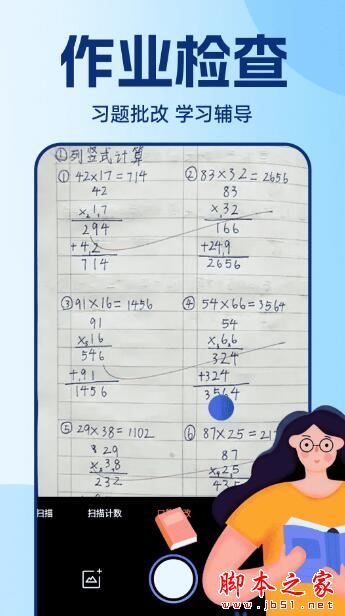 作业检查
习题批改 学习辅导
①列竖式计算
① 42×17=714
42
×17
294
+42
714
② 83×32=2656
83
×32
166
+249
2656
③ 91×16=1456
91
×16
546
+91
1456
④ 54×66=3564
54
×66
324
+324
3564
⑤ 29×38=1102
29
×38
232
⑥ 87×25=21
87
×25
43
扫描
扫描计数
脚本之家
www.jb51.net